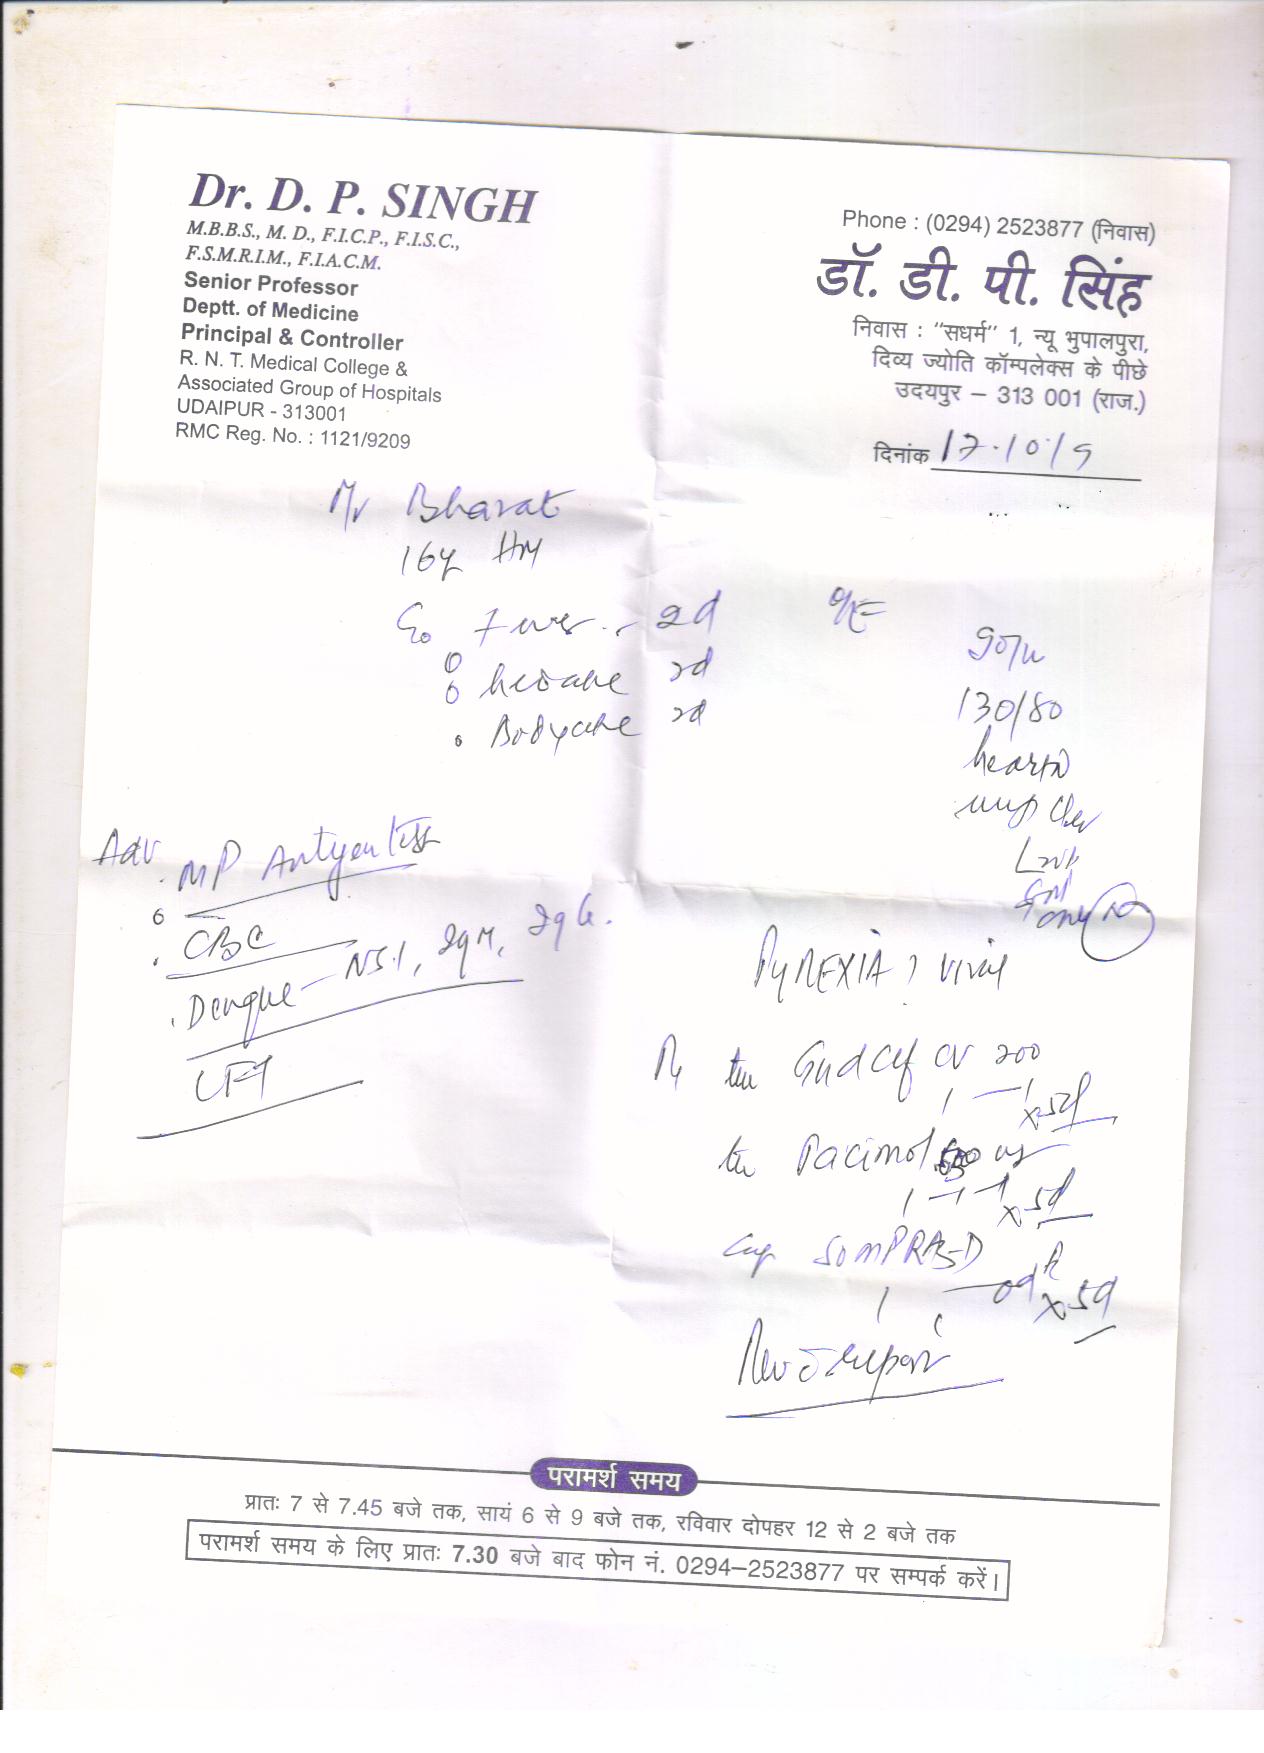 Dr. D. P. SINGH
M.B.B.S., M. D., F.I.C.P., F.I.S.C.,
F.S.M.R.I.M., F.I.A.C.M.
Senior Professor
Deptt. of Medicine
Principal & Controller
R. N. T. Medical College &
Associated Group of Hospitals
UDAIPUR - 313001
RMC Reg. No. : 1121/9209
Phone : (0294) 2523877 (निवास)
डॉ. डी. पी. सिंह
निवास : "सधर्म" 1, न्यू भुपालपुरा,
दिव्य ज्योति कॉम्पलेक्स के पीछे
उदयपुर – 313 001 (राज.)
दिनांक 17.10.15
Mr Bharat
16y HM
Fever - 2d
headache 2d
Bodyache 2d
O/E
90/m
130/80
heart N
Chest
Adv
MP Antigen test
CBC
Dengue - NS1, IgM, IgG.
LFT
PYREXIA ? Viral
Rx Gudcef CV 200
1 — 1 x 5d
Pacimol 500 mg
1 - 1 - 1 x 5d
Cap SOMPRAZ-D
1 — od x 5d
Rev c report
परामर्श समय
प्रातः 7 से 7.45 बजे तक, सायं 6 से 9 बजे तक, रविवार दोपहर 12 से 2 बजे तक
परामर्श समय के लिए प्रातः 7.30 बजे बाद फोन नं. 0294–2523877 पर सम्पर्क करें।